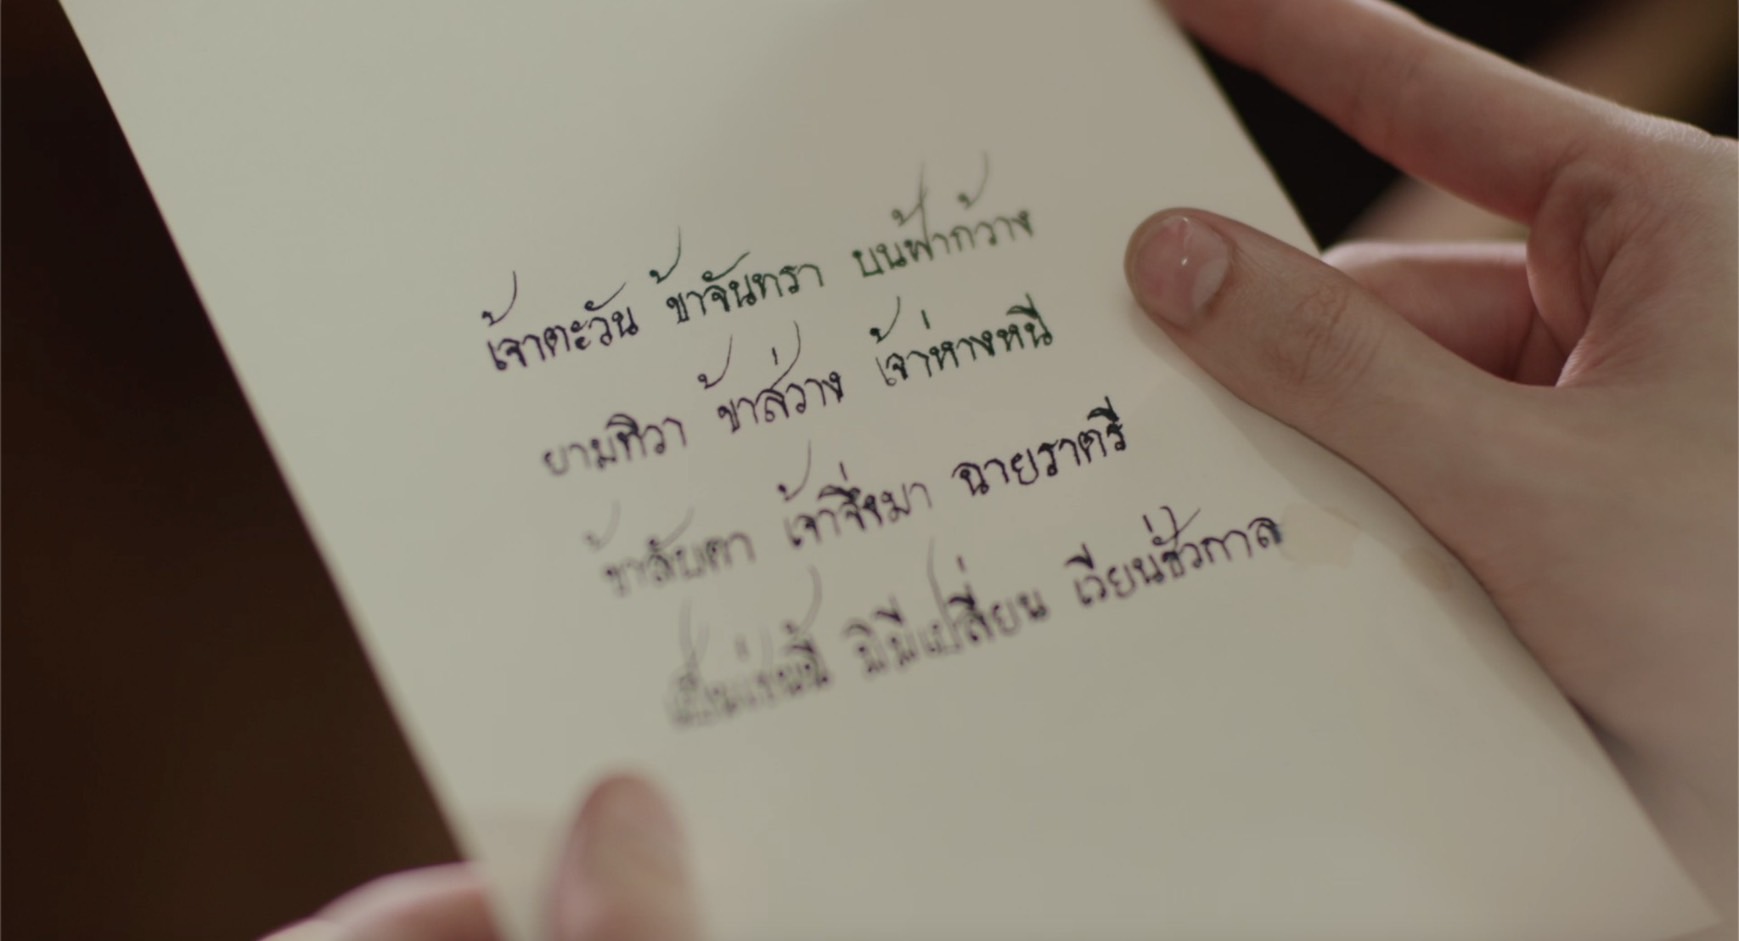 เจ้าตะวัน ข้าจันทรา บนฟ้ากว้าง
ยามทิวา ข้าสว่าง เจ้าห่างหนี
ข้าลับตา เจ้าจึงมา ฉายราตรี
เป็นเช่นนี้ มิมีเปลี่ยน เวียนชั่วกาล